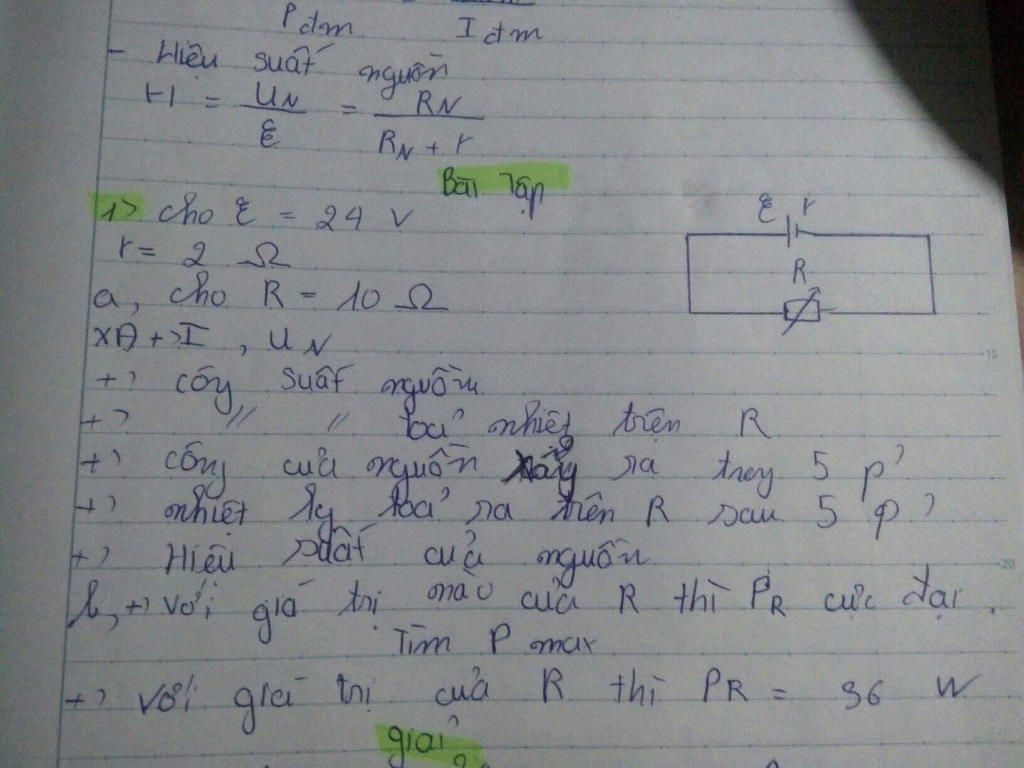 Pđm Iđm
- Hiệu suất nguồn
H = UN / ℰ = RN / (RN + r)
Bài tập
1) cho ℰ = 24 V
r = 2 Ω
ℰ r
R
a, cho R = 10 Ω
XĐ +) I , UN
+) côg suất nguồn
+) // // toả nhiệt trên R
+) công của nguồn ra trog 5 p'
+) nhiệt lg toả ra trên R sau 5 p'
+) Hiệu suất của nguồn
b, +) Với giá trị nào của R thì PR cực đại.
Tìm P max
+) Với giá trị của R thì PR = 36 W
giải
15
20